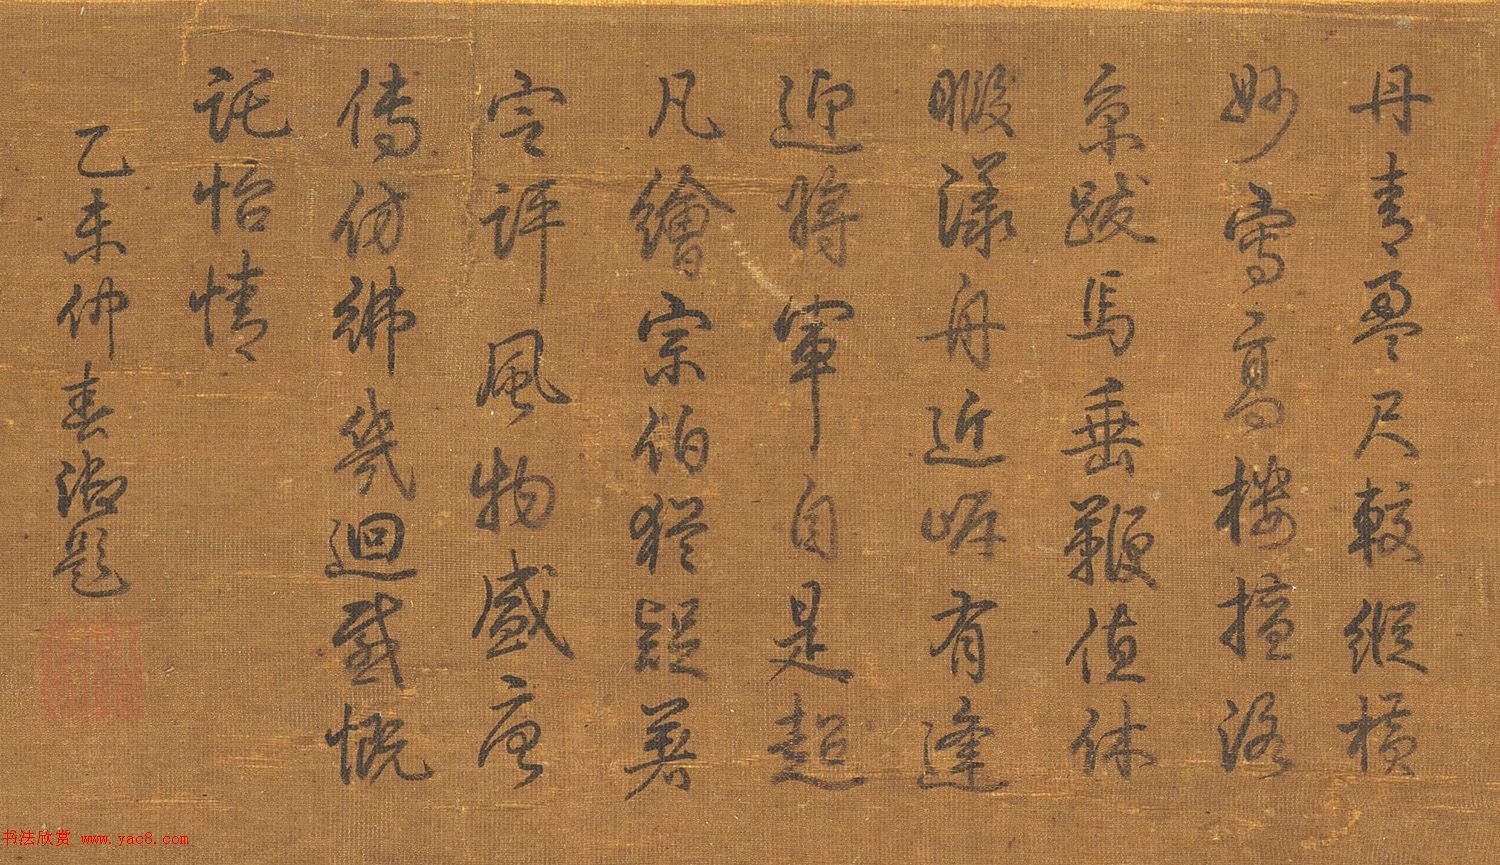 丹青盈尺較縱橫
妙寫高樓擅洛
京跋馬垂鞭值休
暇漾舟近岸有逢
迎將軍自是超
凡繪宗伯猶疑著
定評風物盛唐
傳仿彿幾迴感慨
託怡情
乙未仲春御題
书法欣赏 www.yac8.com